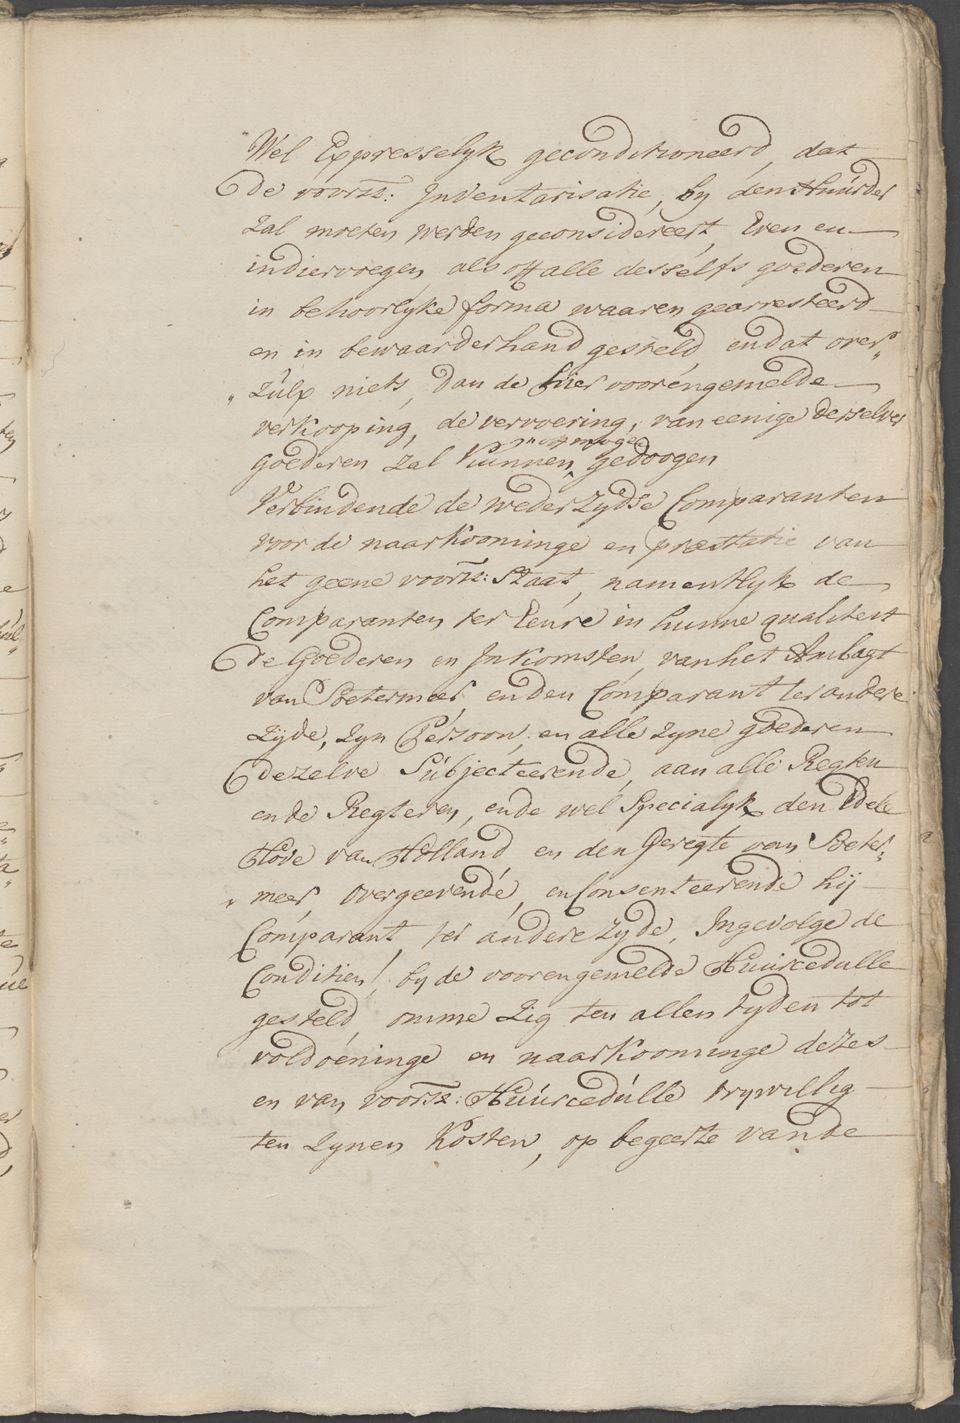 Wel Expresselyk geconditioneerd, dat
de voorsz: Inventarisatie, by den Huúrder
zal moeten werden geconsidereert, Even en
indiervoegen, als off alle desselfs goederen
in behoorlyke forma waaren gearresteerd
en in bewaarderhand gesteld, en dat over„
„zulx niets, dan de hier voorengemelde
verkooping, de vervoering, van eenige desselver
en mogen
Goederen zal kunnen gedoogen
Verbindende de wederzydse Comparanten
voor de naarkooninge en præstatie van
het geene voorsz: Staat, namentlyk de
Comparanten ter Eenre in hunne qualiteit
de Goederen en Inkomsten, van het Ambagt
van Soetermeer, en den Comparant ter andere
Zijde, zyn Persoon, en alle zyne goederen
dezelve Súbjecteerende, aan alle Regten
ende Regteren, ende wel Specialyk den Edele
Hove van Holland, en den Geregte van Soeter„
„meer, overgeevende, en Consenteerende hij
Comparant, ter andere zyde, Ingevolge de
Conditien, by de voorengemelde Huurcedulle
gesteld, omme zig ten allen tyden tot
voldoeninge en naarkooninge dezes
en van voorsz: Húúrcedúlle vrywillig
ten zynen kosten, op begeerte van de